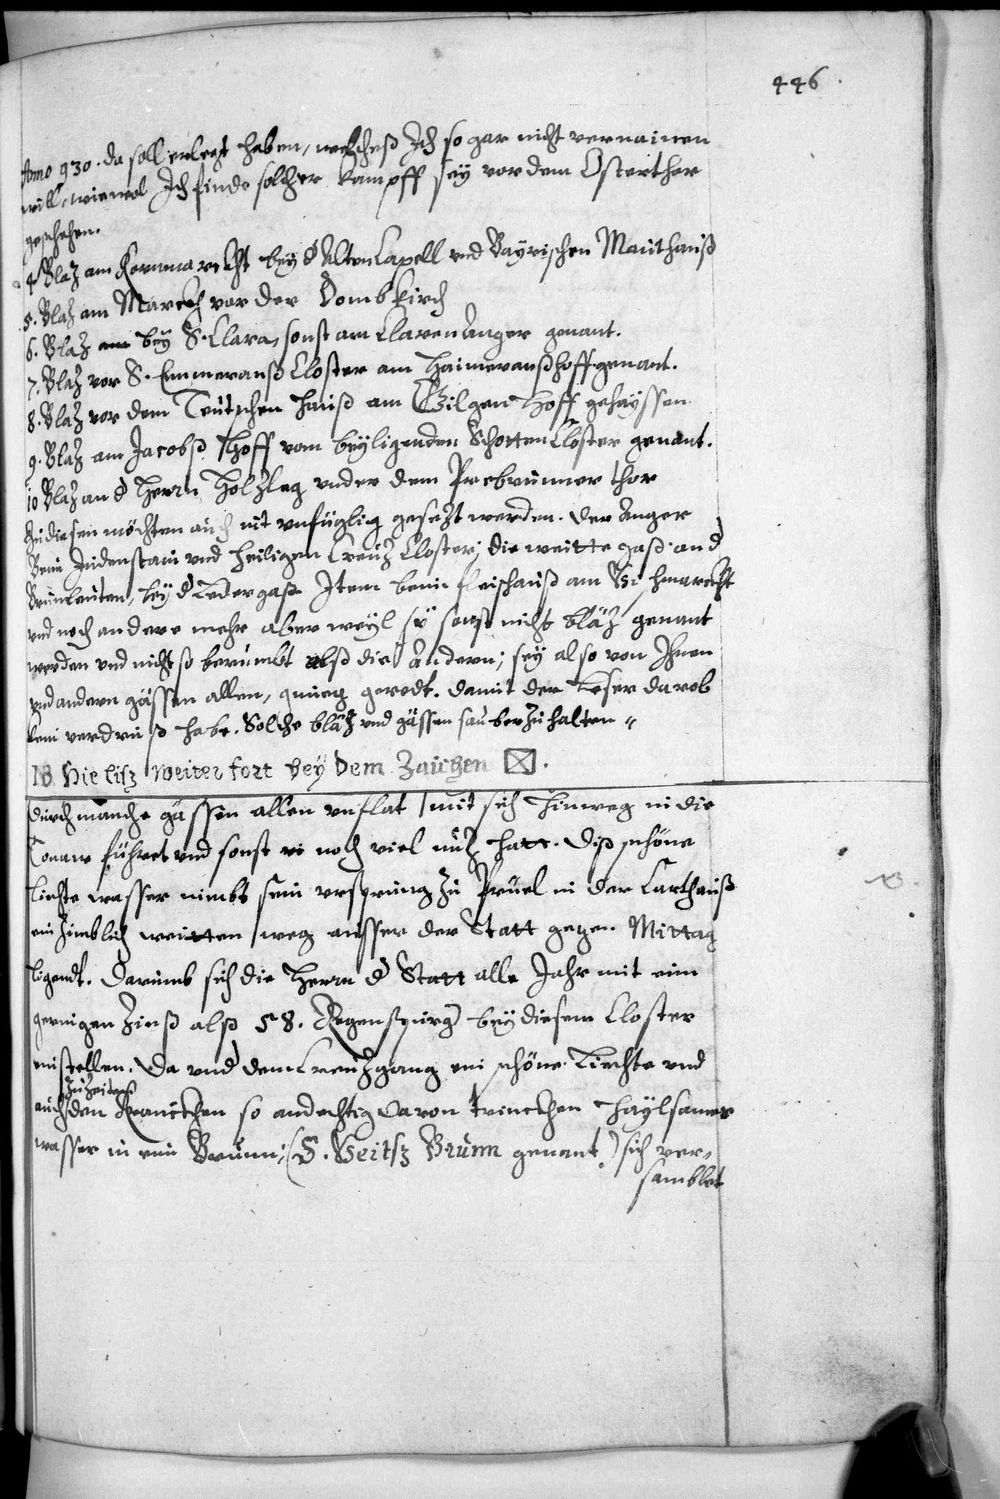 446.
Anno 930. da soll erlegt haben, welcheß Ich so gar nicht vernainen
will, wiewol Ich finde solcher kampff sey vor dem Osterthor
geschehen.
4. Blaz am Kornmarckht bey d Alten Capell vnd Bayrischen Mauthauß
5. Blaz am Marckh vor der Dombkirch
6. Blaz am bey S. Clara, sonst am Claren Anger genant.
7. Blaz vor S. Emmeranß Closter am Haimeranßhoff genant.
8. Blaz vor dem Teutschen Hauß am Gilgen Hoff gehayssen
9. Blaz am Jacobß Hoff vom beyligenden Schotten Closter genant.
10 Blaz an d Herrn Holzleg vnder dem Prebrunner thor
Zu diesen möchten auch nit vnfüglig gesezt werden. der Anger
Beim Judenstain vnd heiligen Creuz Closter, die weitte gaß an d
Brunleuten, bey d Ledergaß Item beim fleischauß am Vischmarckht
vnd noch andere mehr aber weyl sy sonst nicht bläz genant
werden vnd nicht so berumbt alß die Andern; sey also von Ihnen
vnd andern gässen allen, gnueg geredt. damit der Leser darob
kein verdruß habe. Solche bläz vnd gässen sauber zu halten "
NB Hie lisz weiter fort bey dem Zaichen ☒.
durch manche gässen allen vnflat mit sich hinweg in die
Tonaw führet vnd sonst noch viel nuz hatt. Diß schöne
liechte wasser nimbt sein vrsprung zu Prüel in der Carthauß
ein zimblich weitten weg ausser der Statt gegen Mittag
ligendt. Darumb sich die Herrn d Statt alle Jahr mit eim
geringen Zinß alß 58. Regenspurg bey diesem Closter
einstellen. Da vnd dem Creuzgang ein schöne Liechte vnd
zu Zeitenß
auch den Krancken so andechtig daron trincken haylsames
wasser in ein Brunn; (S. Veitsz Brunn genant) sich ver=
samblet